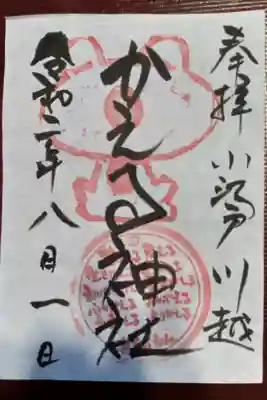 奉拝 小江戸川越
かえる神社
令和二年八月一日